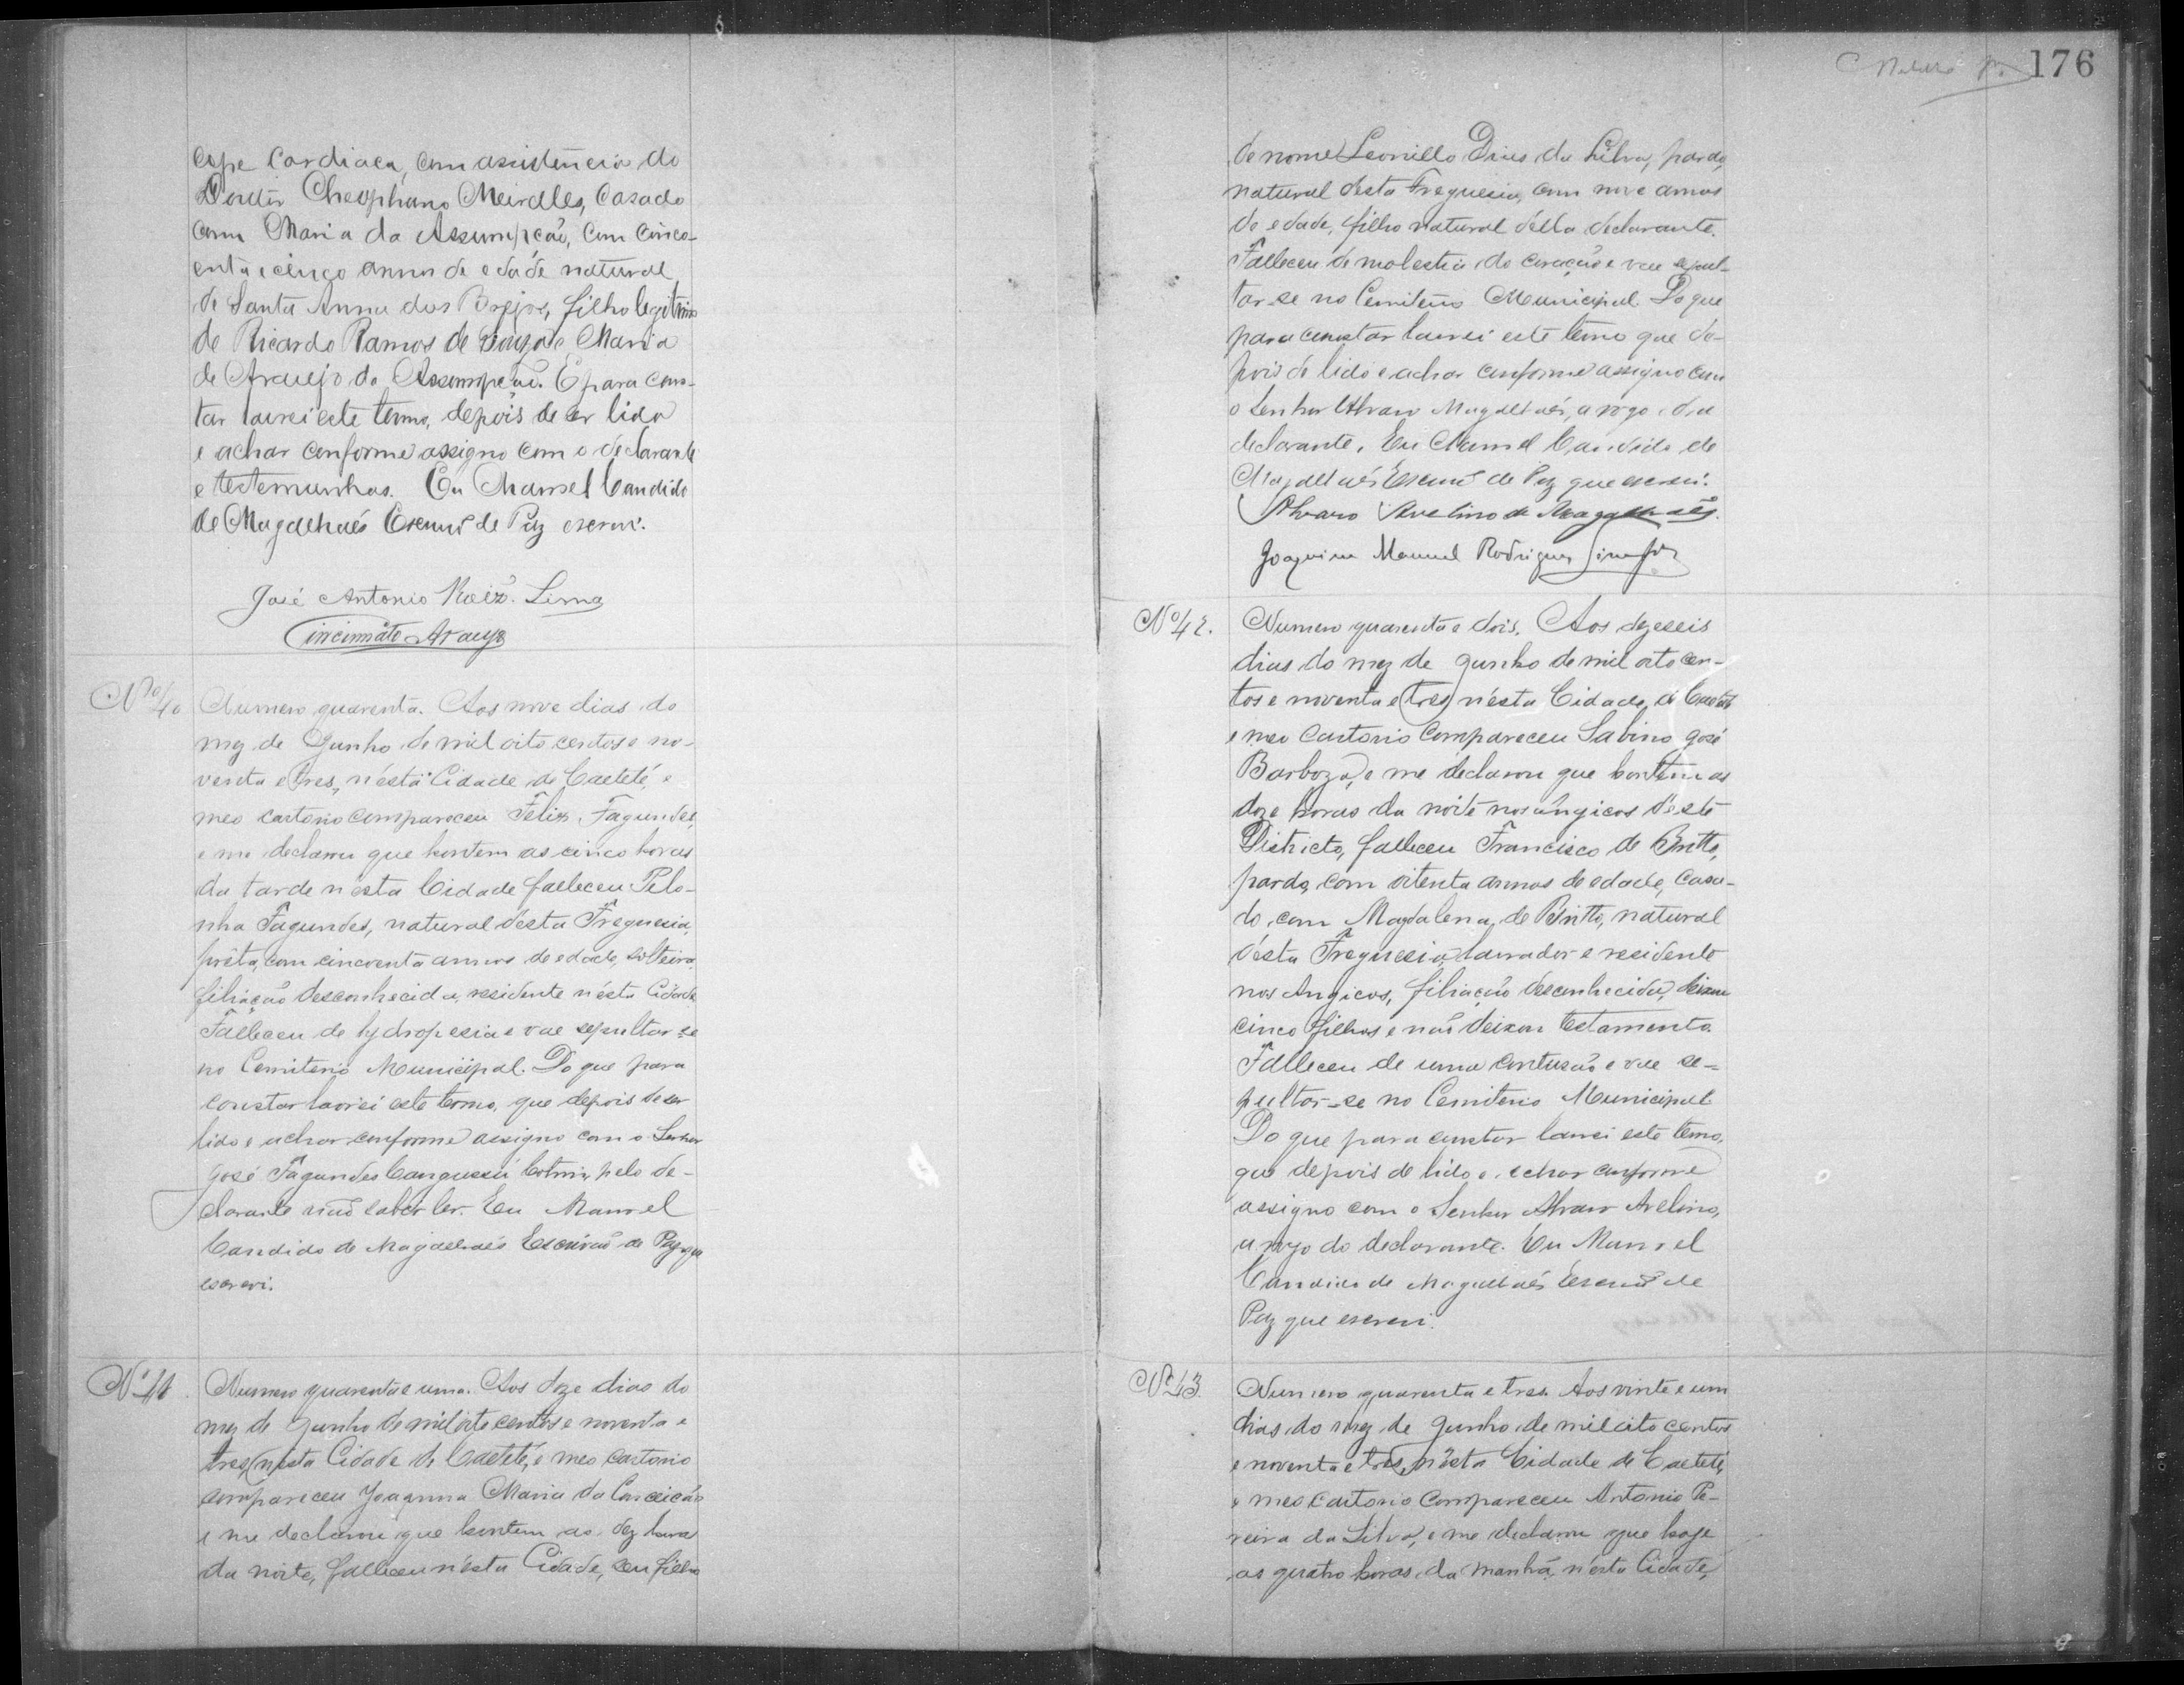 cope Cardiaca, com assistencia do
Doutor Cheophano Meirelles, Casado
com Maria da Assumpção, com cinco-
enta e cinco annos de edade natural
de Santa Anna dos Brejos, filho legitimo
de Ricardo Ramos de Souza e Maria
de Araujo da Assumpção. E para cons-
tar lavrei este termo, depois de ser lido
e achar conforme assigno com o declarante
e testemunhas. Eu Manoel Candido
de Magalhaés Escrivão de Paz escrevi.
José Antonio Lima
Cincinnato Araujo
Nº 40
Numero quarenta. Aos nove dias do
mez de Junho de mil oito centos e no-
venta e tres, n'ésta Cidade de Caeteté, e
meo cartorio compareceu Felix Fagundes,
e me declarou que hontem as cinco horas
da tarde n'ésta Cidade falleceu Pelo-
nha Fagundes, natural désta Freguesia,
prêta, com cincoenta annos de edade, solteira,
filiação desconhecida, residente n'ésta Cidade
Falleceu de hydropesia e vae sepultar-se
no Cemiterio Municipal. Do que para
constar lavrei este termo, que depois de ser
lido e achar conforme assigno com o Senhor
José Fagundes Cangussú Cotrim, pelo de-
clarante não saber ler. Eu Manoel
Candido de Magalhaés Escrivão de Paz que
escrevi.
Nº 41
Numero quarenta e uma. Aos doze dias do
mez de Junho de mil oito centos e noventa e
tres, n'ésta Cidade de Caeteté, e meo cartorio
compareceu Joaquina Maria da Conceição
e me declarou que hontem as dez horas
da noite, falleceu n'ésta Cidade, seu filho
176
de nome Leonillo Dias da Silva, pardo,
natural desta Freguesia, com nove annos
de edade, filho natural della declarante.
Falleceu de molestia do coração e vae sepul-
tar-se no Cemiterio Municipal. Do que
para constar lavrei este termo que de-
pois de lido e achar conforme assigno com
o Senhor Alvaro Magalhaés, a rogo da
declarante. Eu Manoel Candido de
Magalhaés Escrivão de Paz que escrevi.
Alvaro Avelino de Magalhaés.
Joaquim Manuel Rodrigues
Nº 42.
Numero quarenta e dois. Aos dezeseis
dias do mez de Junho de mil oito cen-
tos e noventa e tres, n'ésta Cidade de Caeteté
e meo Cartorio Compareceu Sabino José
Barboza, e me declarou que hontem as
doze horas da noite nos Angicos déste
Districto, falleceu Francisco de Britto,
pardo, com oitenta annos de edade, casa-
do com Magdalena de Britto, natural
désta Freguesia, lavrador e residente
nos Angicos, filiação desconhecida, deixou
cinco filhos e não deixou testamento.
Falleceu de uma contusão e vae se-
pultar-se no Cemiterio Municipal.
Do que para constar lavrei este termo,
que depois de lido e achar conforme
assigno com o Senhor Alvaro Avelino,
a rogo do declarante. Eu Manoel
Candido de Magalhaés Escrivão de
Paz que escrevi.
Nº 43.
Numero quarenta e tres. Aos vinte e um
dias do mez de Junho de mil oito centos
e noventa e tres, n'ésta Cidade de Caeteté,
e meo cartorio compareceu Antonio Pe-
reira da Silva, e me declarou que hoje
as quatro horas da manhã, n'ésta Cidade,